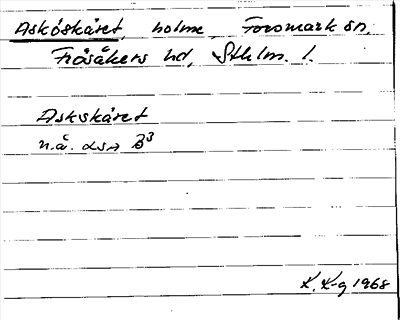 Asköskäret, holme, Forsmark sn,
Frösåkers hd, Sthlm. l.
Askskäret
n.ä. LSA B³
K. K-g 1968